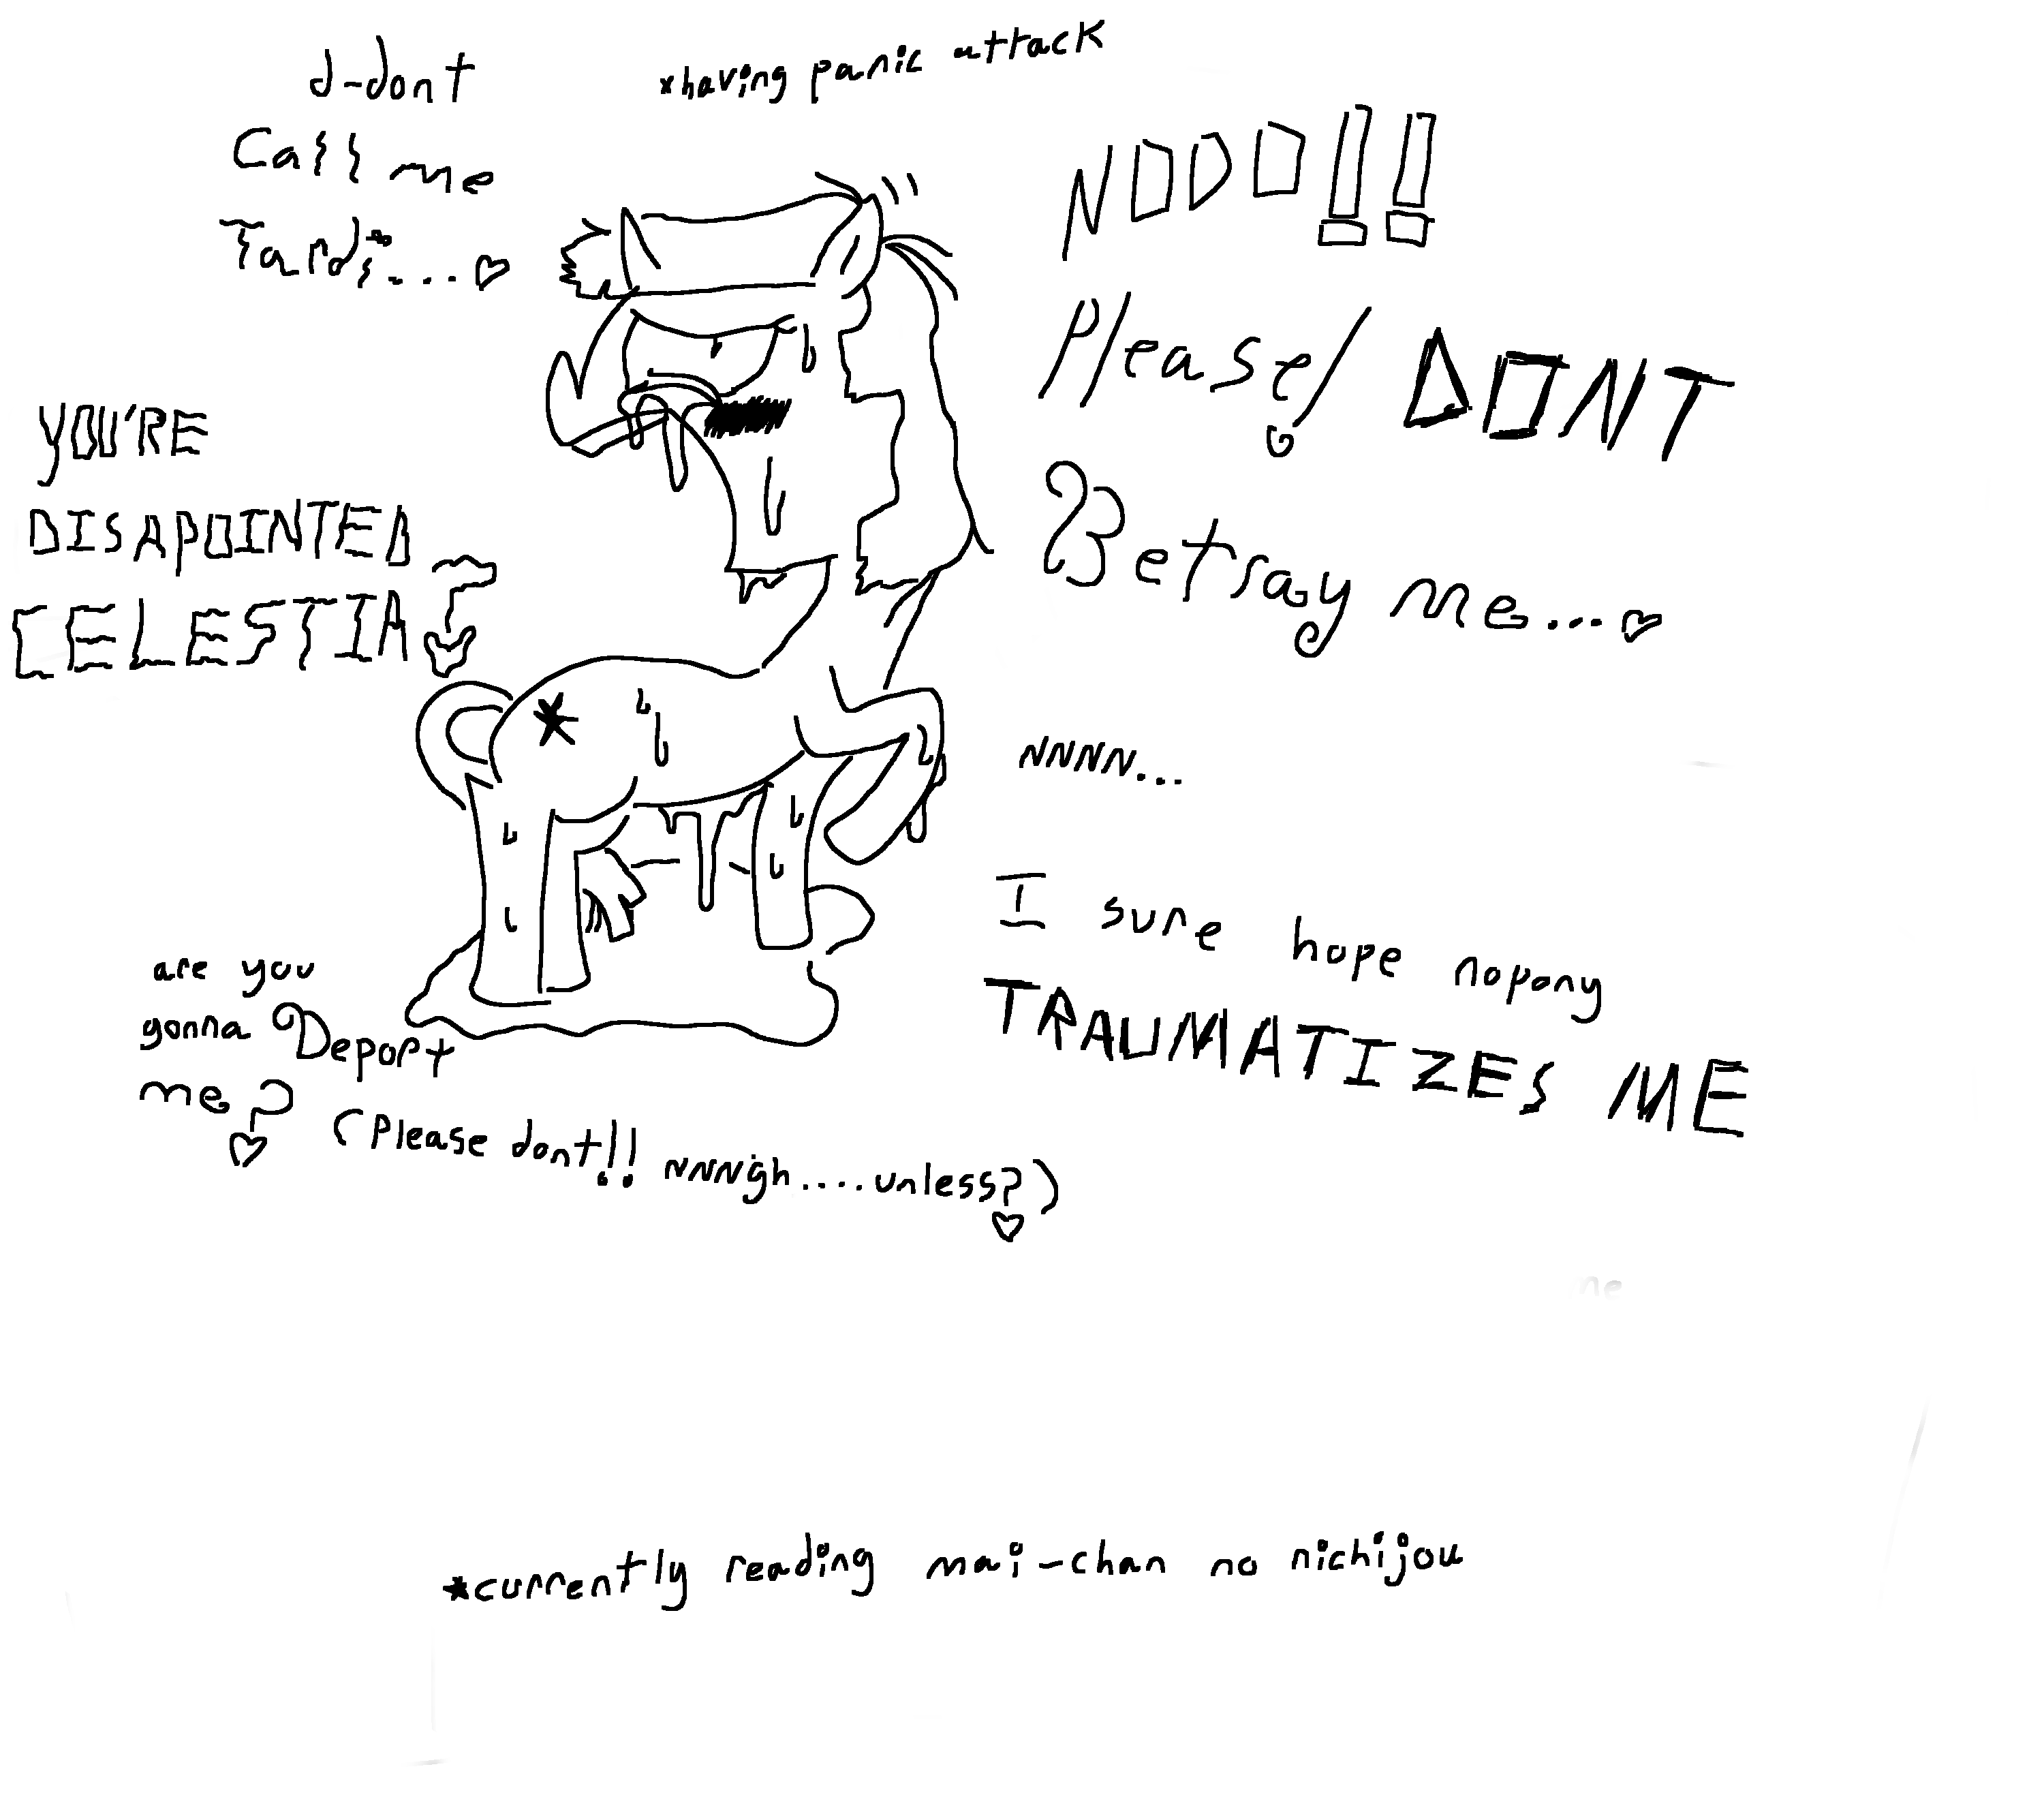 d-dont
Call me
Tardi....♡
*having panic attack
NOOO!!
Please! DONT
Betray me...♡
YOU'RE
DISAPOINTED
CELESTIA?
NNNN...
I sure hope nopony
TRAUMATIZES ME
are you
gonna Deport
me?♡
(Please dont!! NNNgh....unless?)♡
*currently reading mai-chan no nichijou